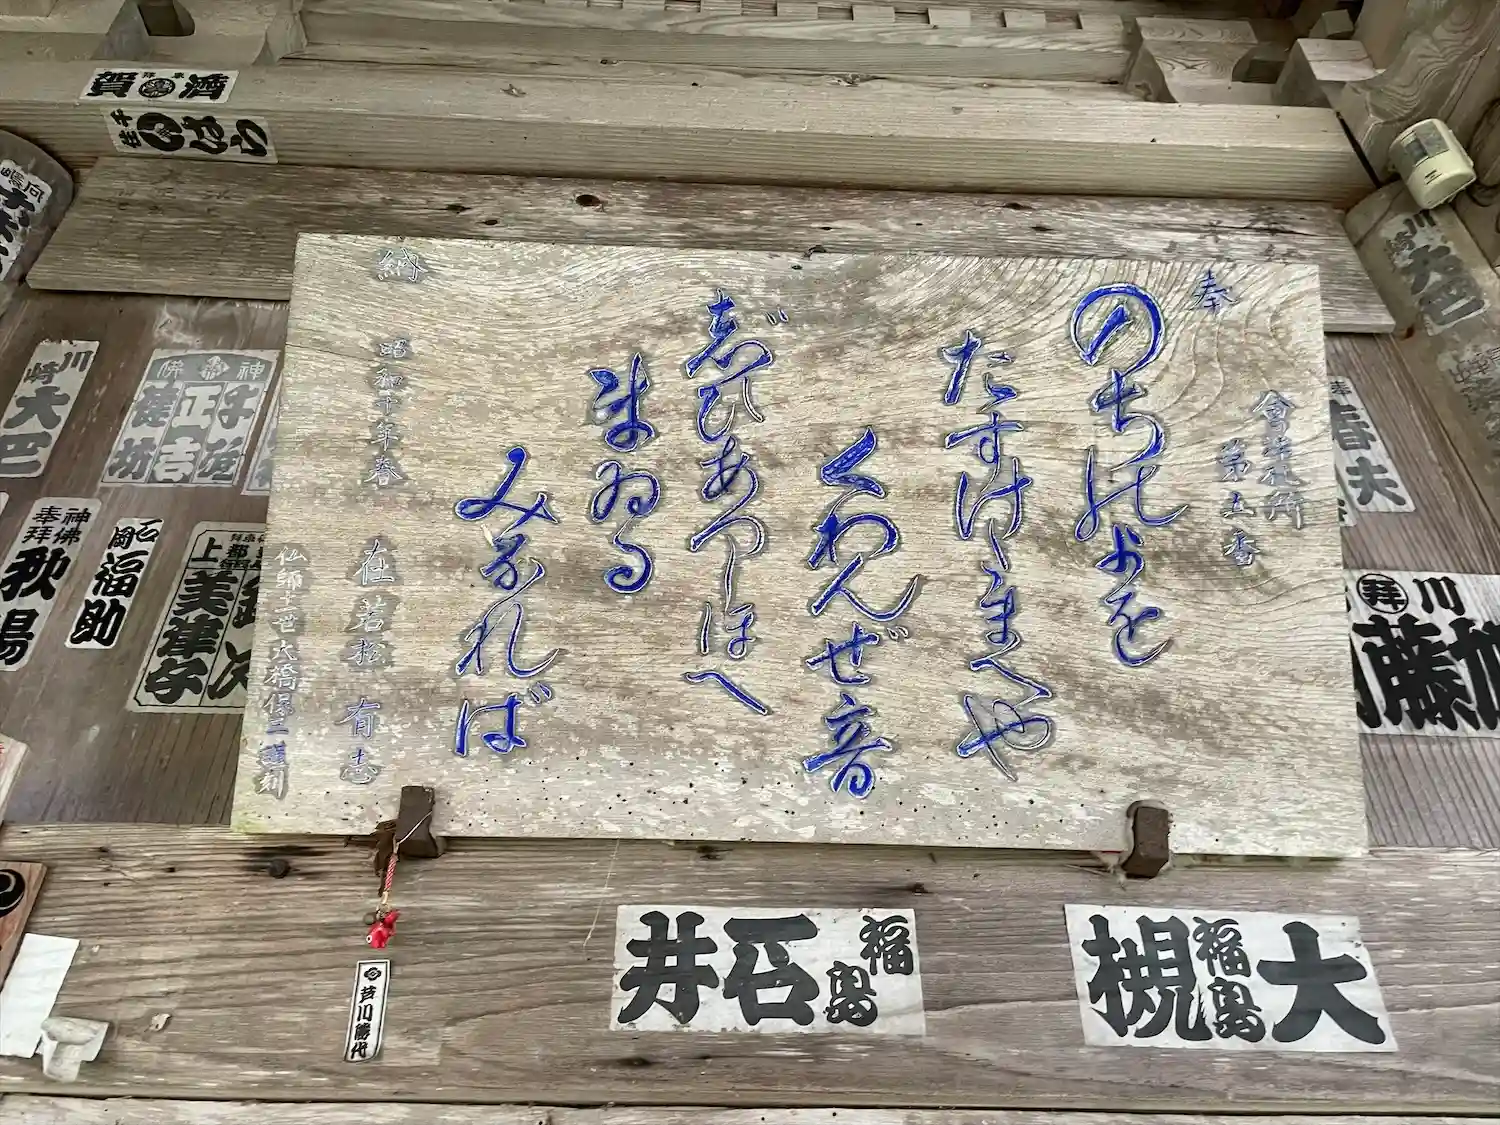 奉
會津札所
第五番
のちのよを
たすけたまへや
くわんぜ音
じひあつしほへ
まゐる
みなれば
納
昭和十年春
在若松 有志
仏師十二世大橋保三謹刻
川崎
大巴
神佛
奉拝
秋場
石岡
福助
美津子
芦川勝代
福島
石井
大槻
福島
奉
春夫
川崎
大巴
川
拝
加藤